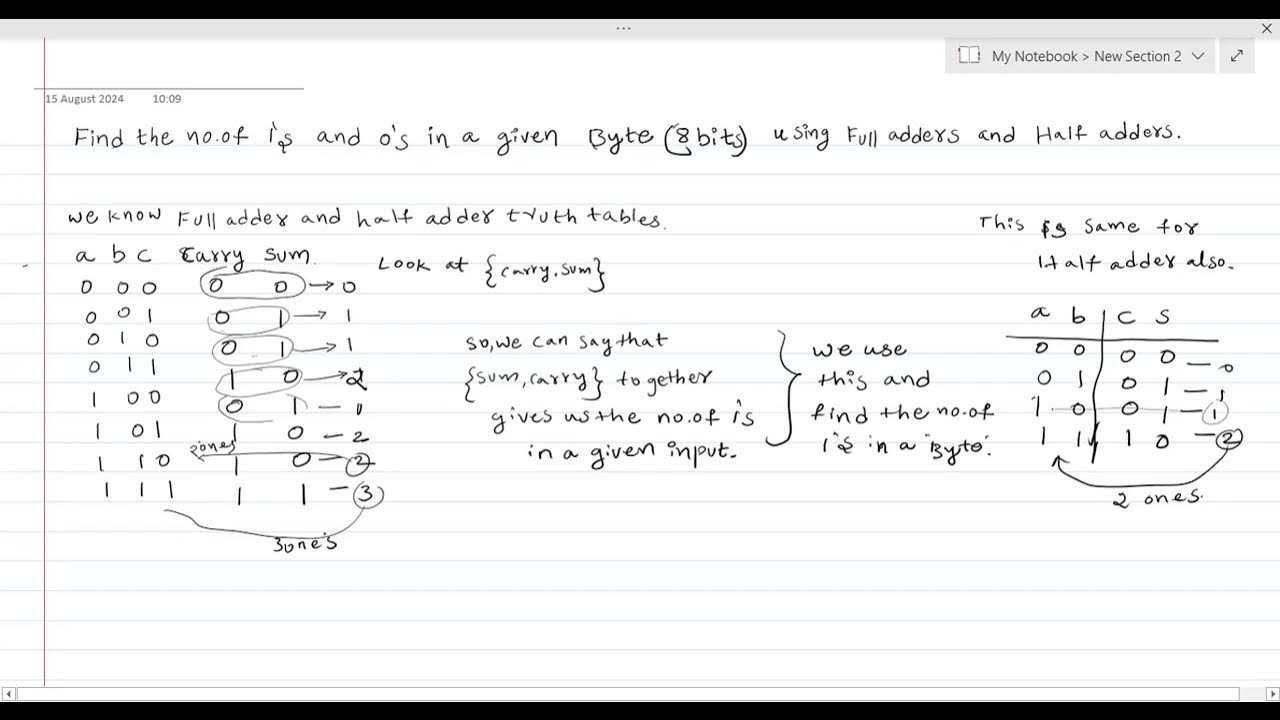 My Notebook > New Section 2
15 August 2024 10:09
Find the no.of 1's and 0's in a given Byte (8 bits) using Full adders and Half adders.
we know Full adder and half adder truth tables.
a b c Carry Sum
0 0 0 0 0 → 0
0 0 1 0 1 → 1
0 1 0 0 1 → 1
0 1 1 1 0 → 2
1 0 0 0 1 - 1
1 0 1 1 0 - 2
2ones
1 1 0 1 0 - 2
1 1 1 1 1 - 3
3one's
Look at {carry, sum}
so, we can say that
{sum, carry} together
gives us the no.of 1s
in a given input.
we use
this and
find the no.of
1's in a Byte.
This is same for
Half adder also.
a b c s
0 0 0 0 - 0
0 1 0 1 - 1
1 0 0 1 - 1
1 1 1 0 - 2
2 ones.